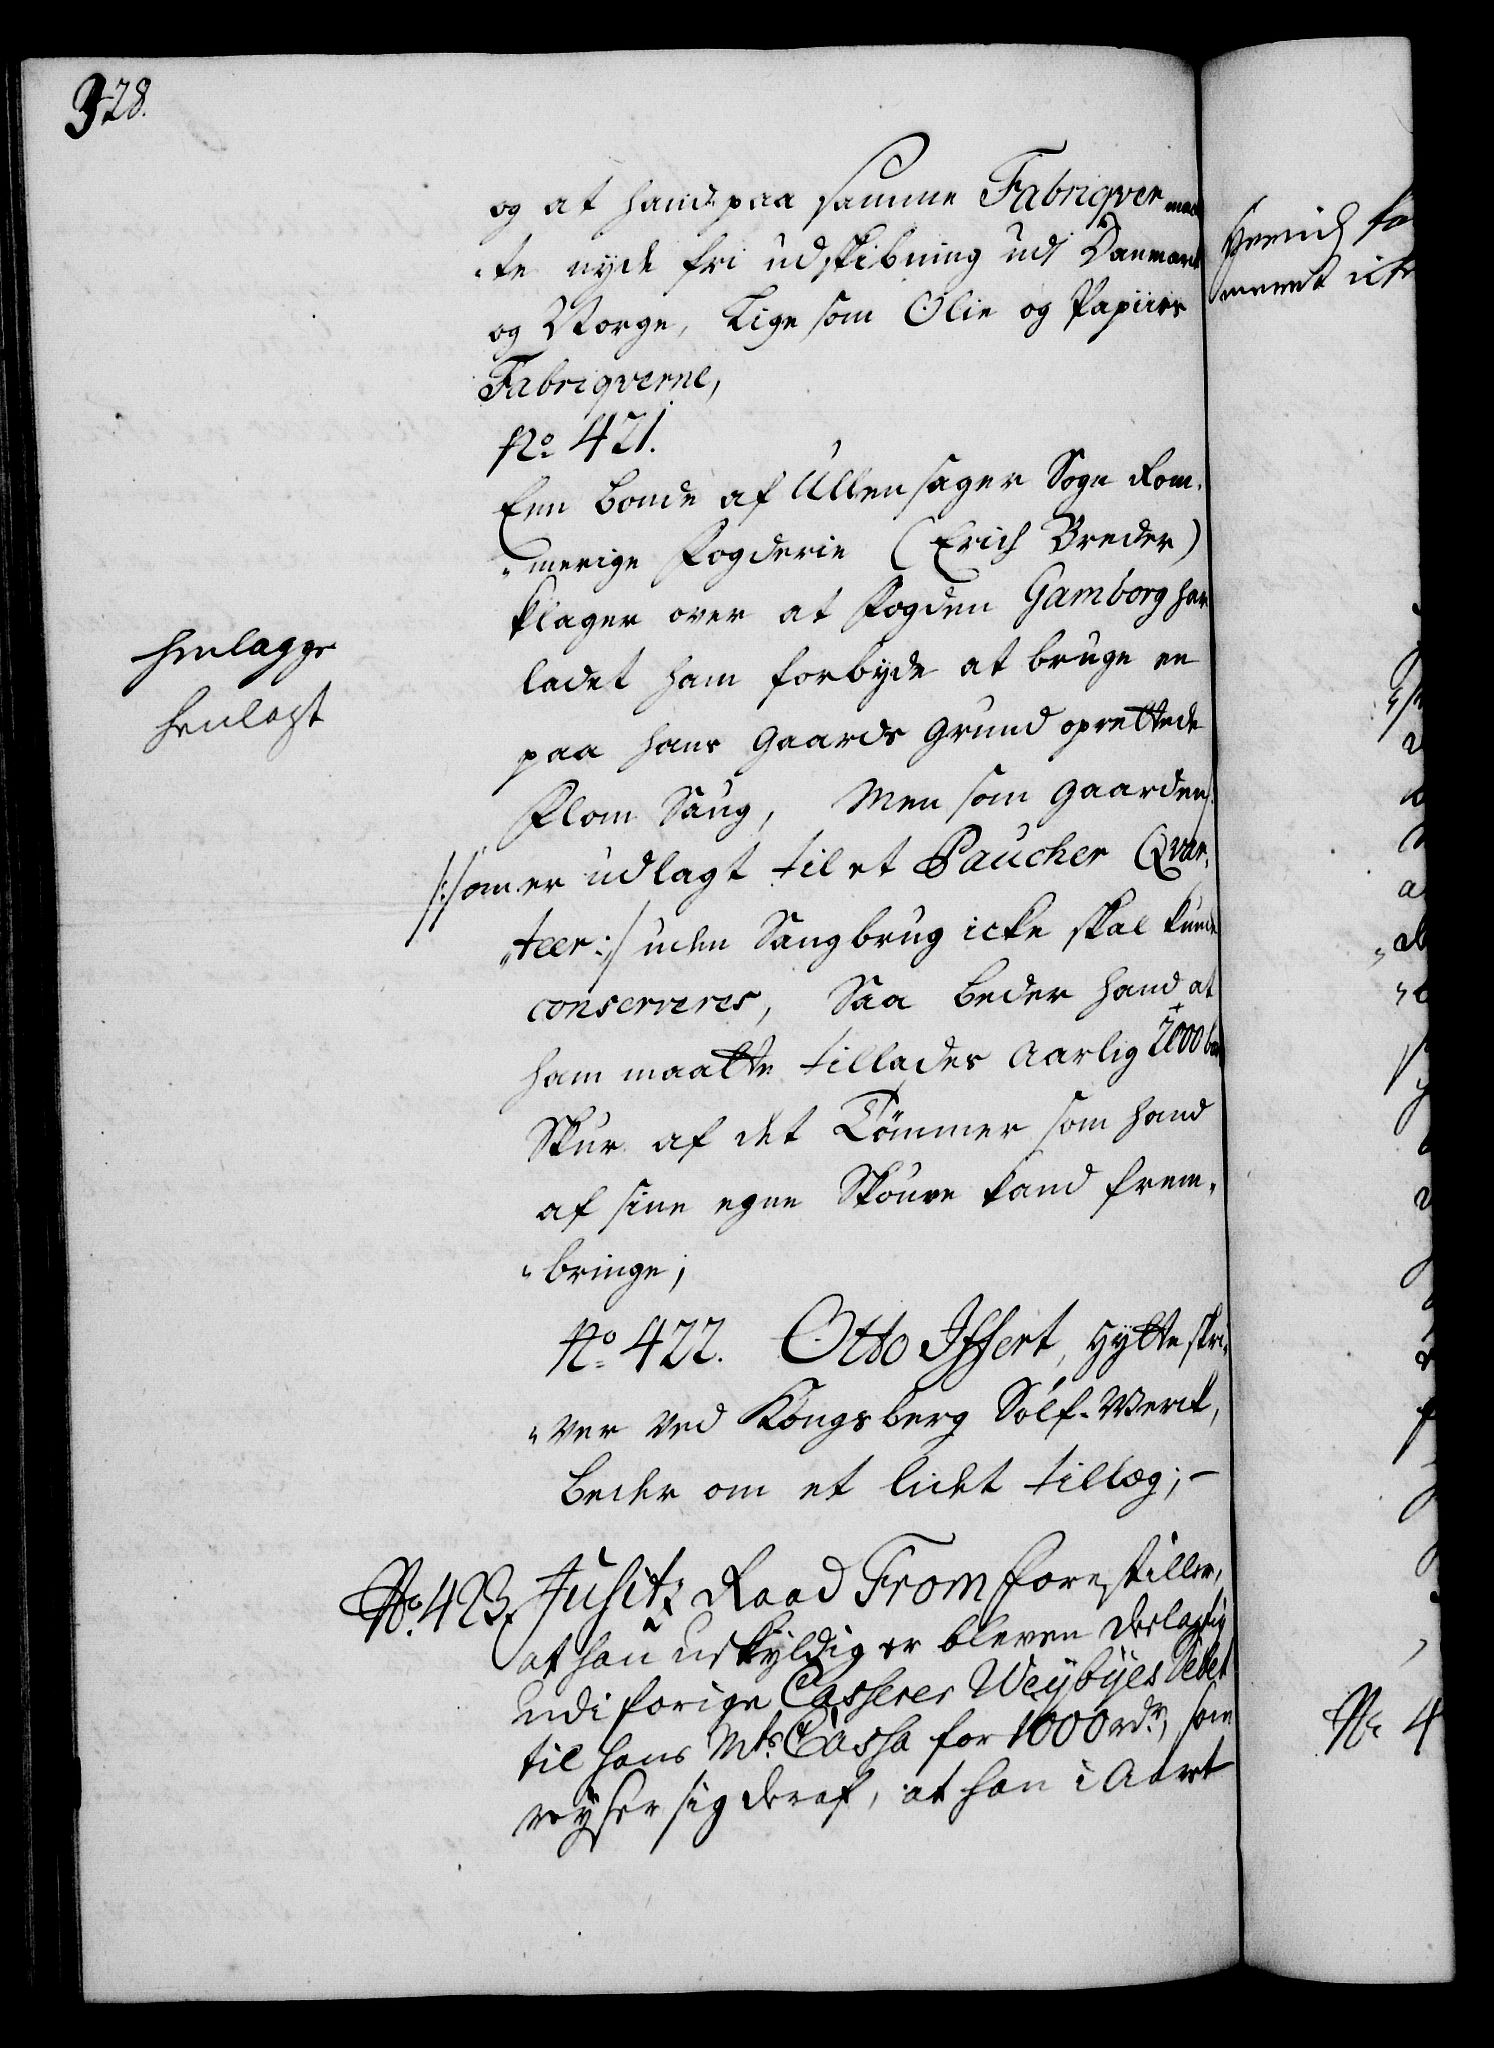 328.
og at hand paa samme Fabriqver maa
„te nyde fri udskibning udi Danmark
og Norge, Lige som Olie og Papiirs
Fabriqverne,
No 421.
Een bonde af Ullensager Sogn Rom„
„merige Fogderie (Erich Breder)
klager over at Fogden Gamborg har
henlagges
ladet ham forbyde at bruge en
henlagt
paa hans Gaards Grund oprettede
Flom Saug, Men som Gaarden
/: som er udlagt til et Paucher Qvar„
„teer :/ uden Saugbrug icke skal kunde
conserveres, Saa beder hand at
ham maatte tillades Aarlig 2000 b
Skur af det Tømmer som hand
af sine egne Skoure kand frem„
„bringe;
No 422. Otto Iffert, Hytteskri„
„ver ved Kongsberg Sølf-Werk,
beder om et lidet tillæg; -
No. 423. Justitz Raad From forestiller,
at han uskyldig er bleven deelagtig
udi forige Casserer Weybyes debet
til hans Mts. Cassa for 1000 rdr, som
reyser sig deraf, at han i Aaret
No 4